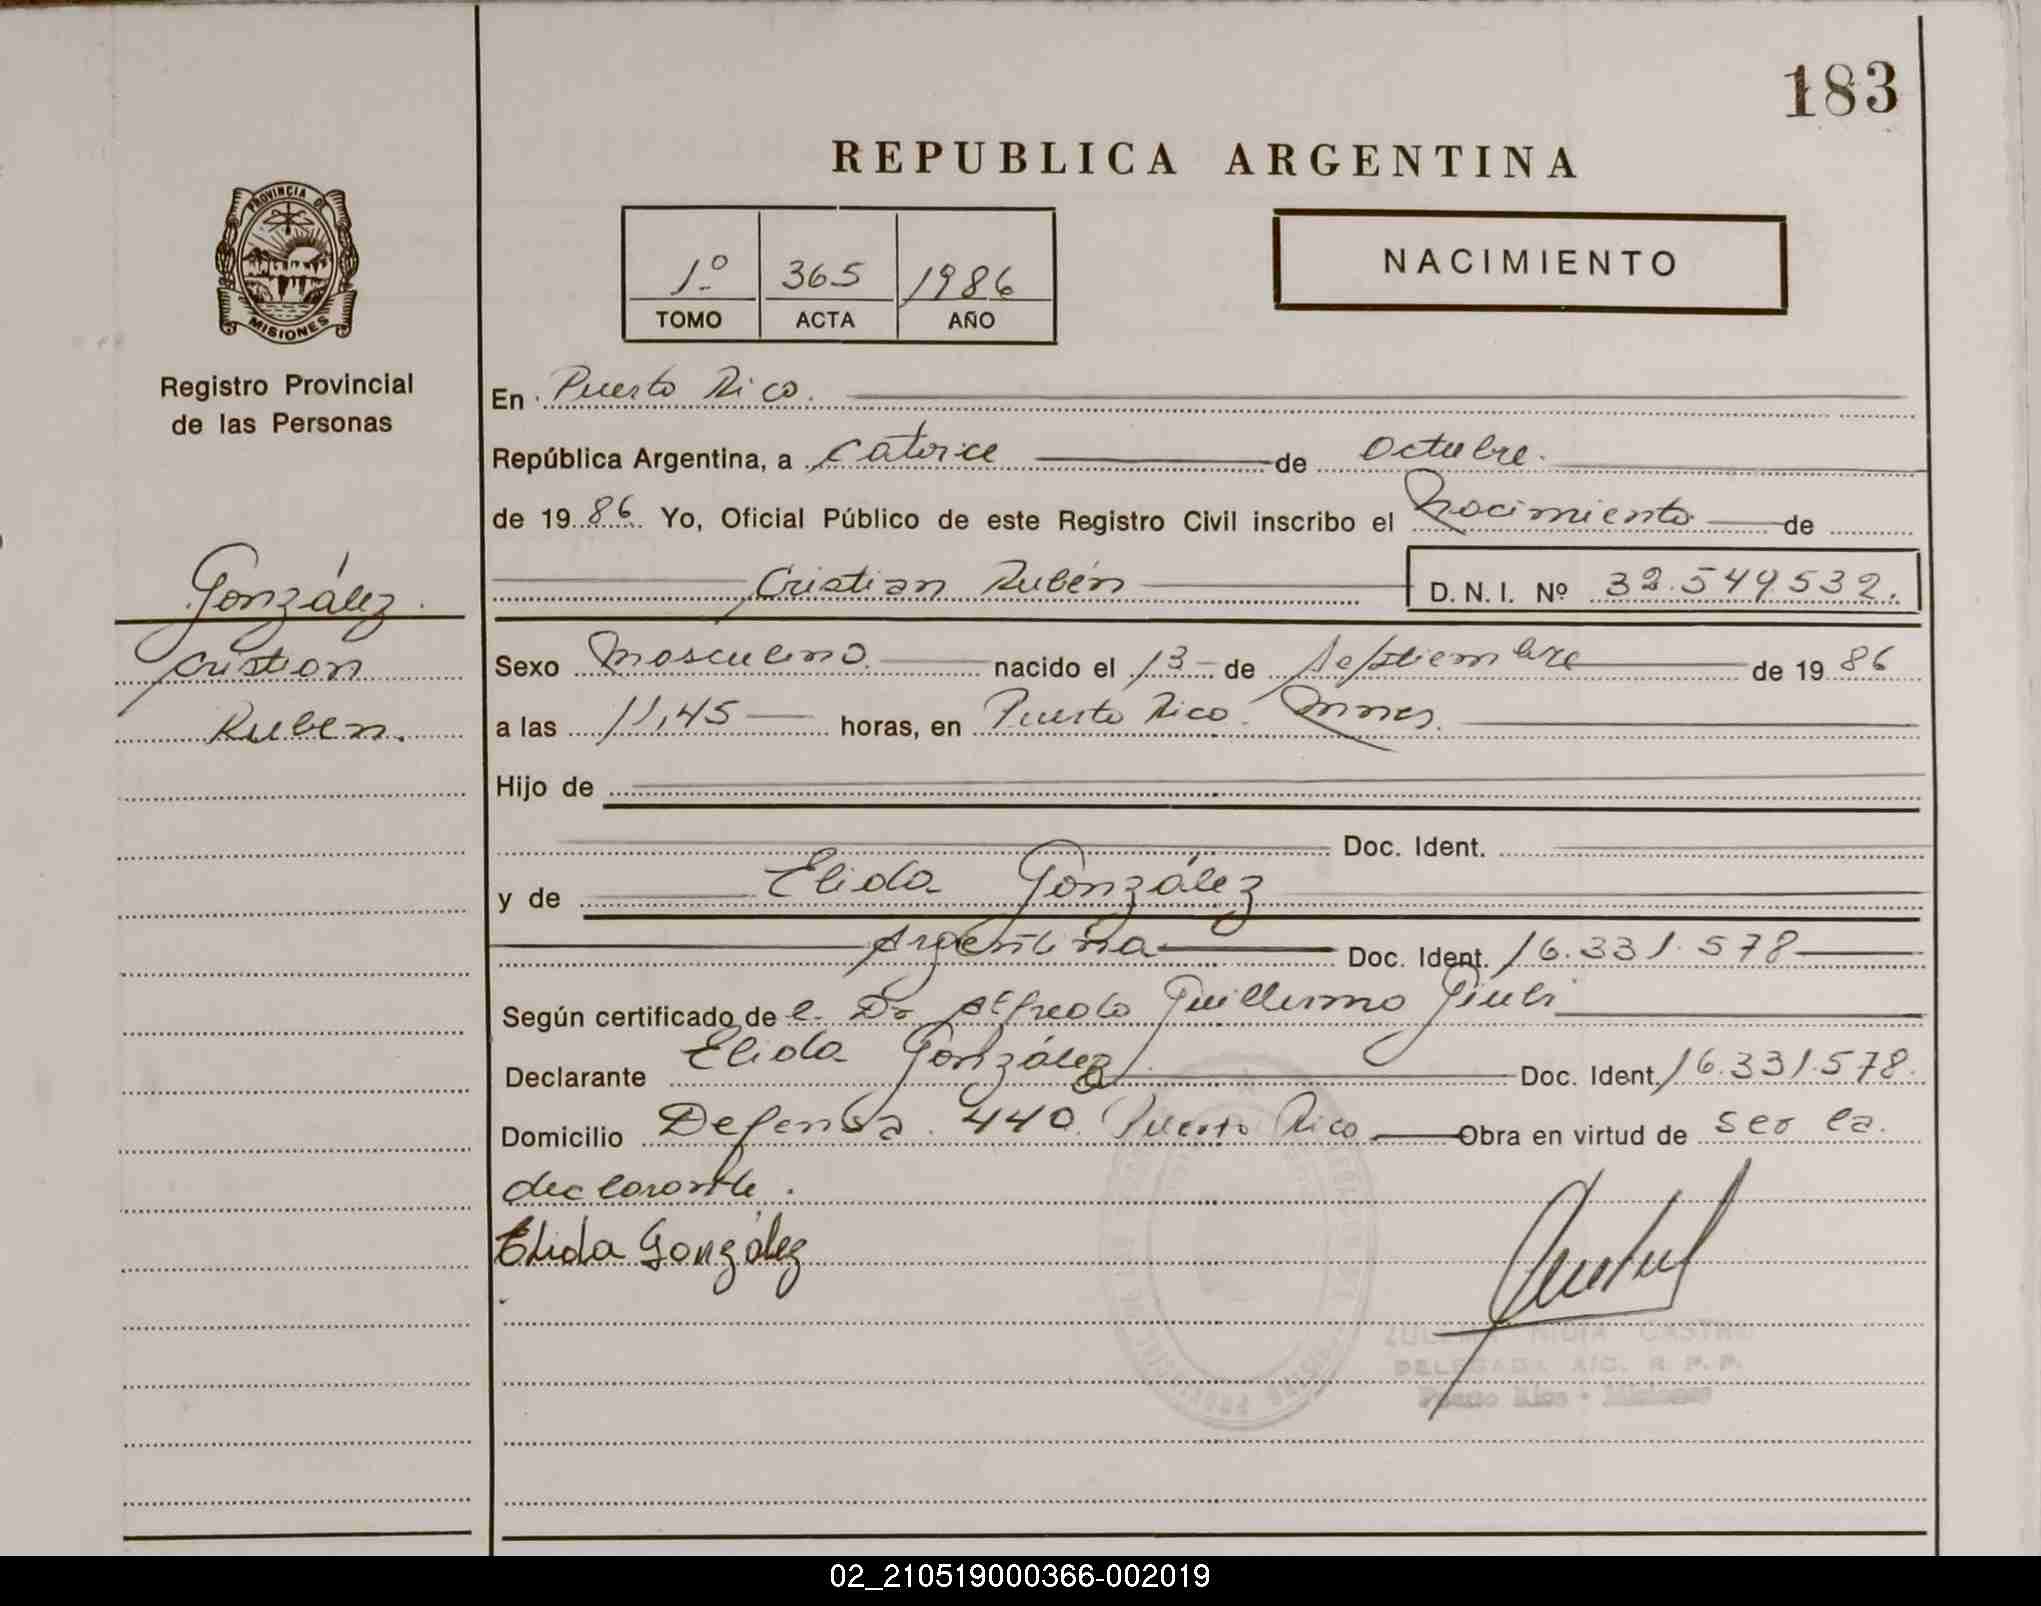 183
REPUBLICA ARGENTINA
PROVINCIA DE
MISIONES
Registro Provincial
de las Personas
1º 365 1986
TOMO ACTA AÑO
NACIMIENTO
En Puerto Rico.
República Argentina, a catorce de Octubre.
de 1986. Yo, Oficial Público de este Registro Civil inscribo el Nacimiento de
Cristian Rubén D.N.I. Nº 32.549532.
González.
Cristian
Ruben.
Sexo Masculino. nacido el 13 de Septiembre de 1986
a las 11,45 horas, en Puerto Rico. Mnes.
Hijo de
Doc. Ident.
y de Elida González
Argentina Doc. Ident. 16.331.578
Según certificado de e. Dr Alfredo Guillermo
Declarante Elida González Doc. Ident. 16.331.578.
Domicilio Defensa. 440. Puerto Rico Obra en virtud de ser la
declarante.
Elida González
NIDIA CASTRO
DELEGADA A/C. R. P. P.
Puerto Rico - Misiones
02_210519000366-002019